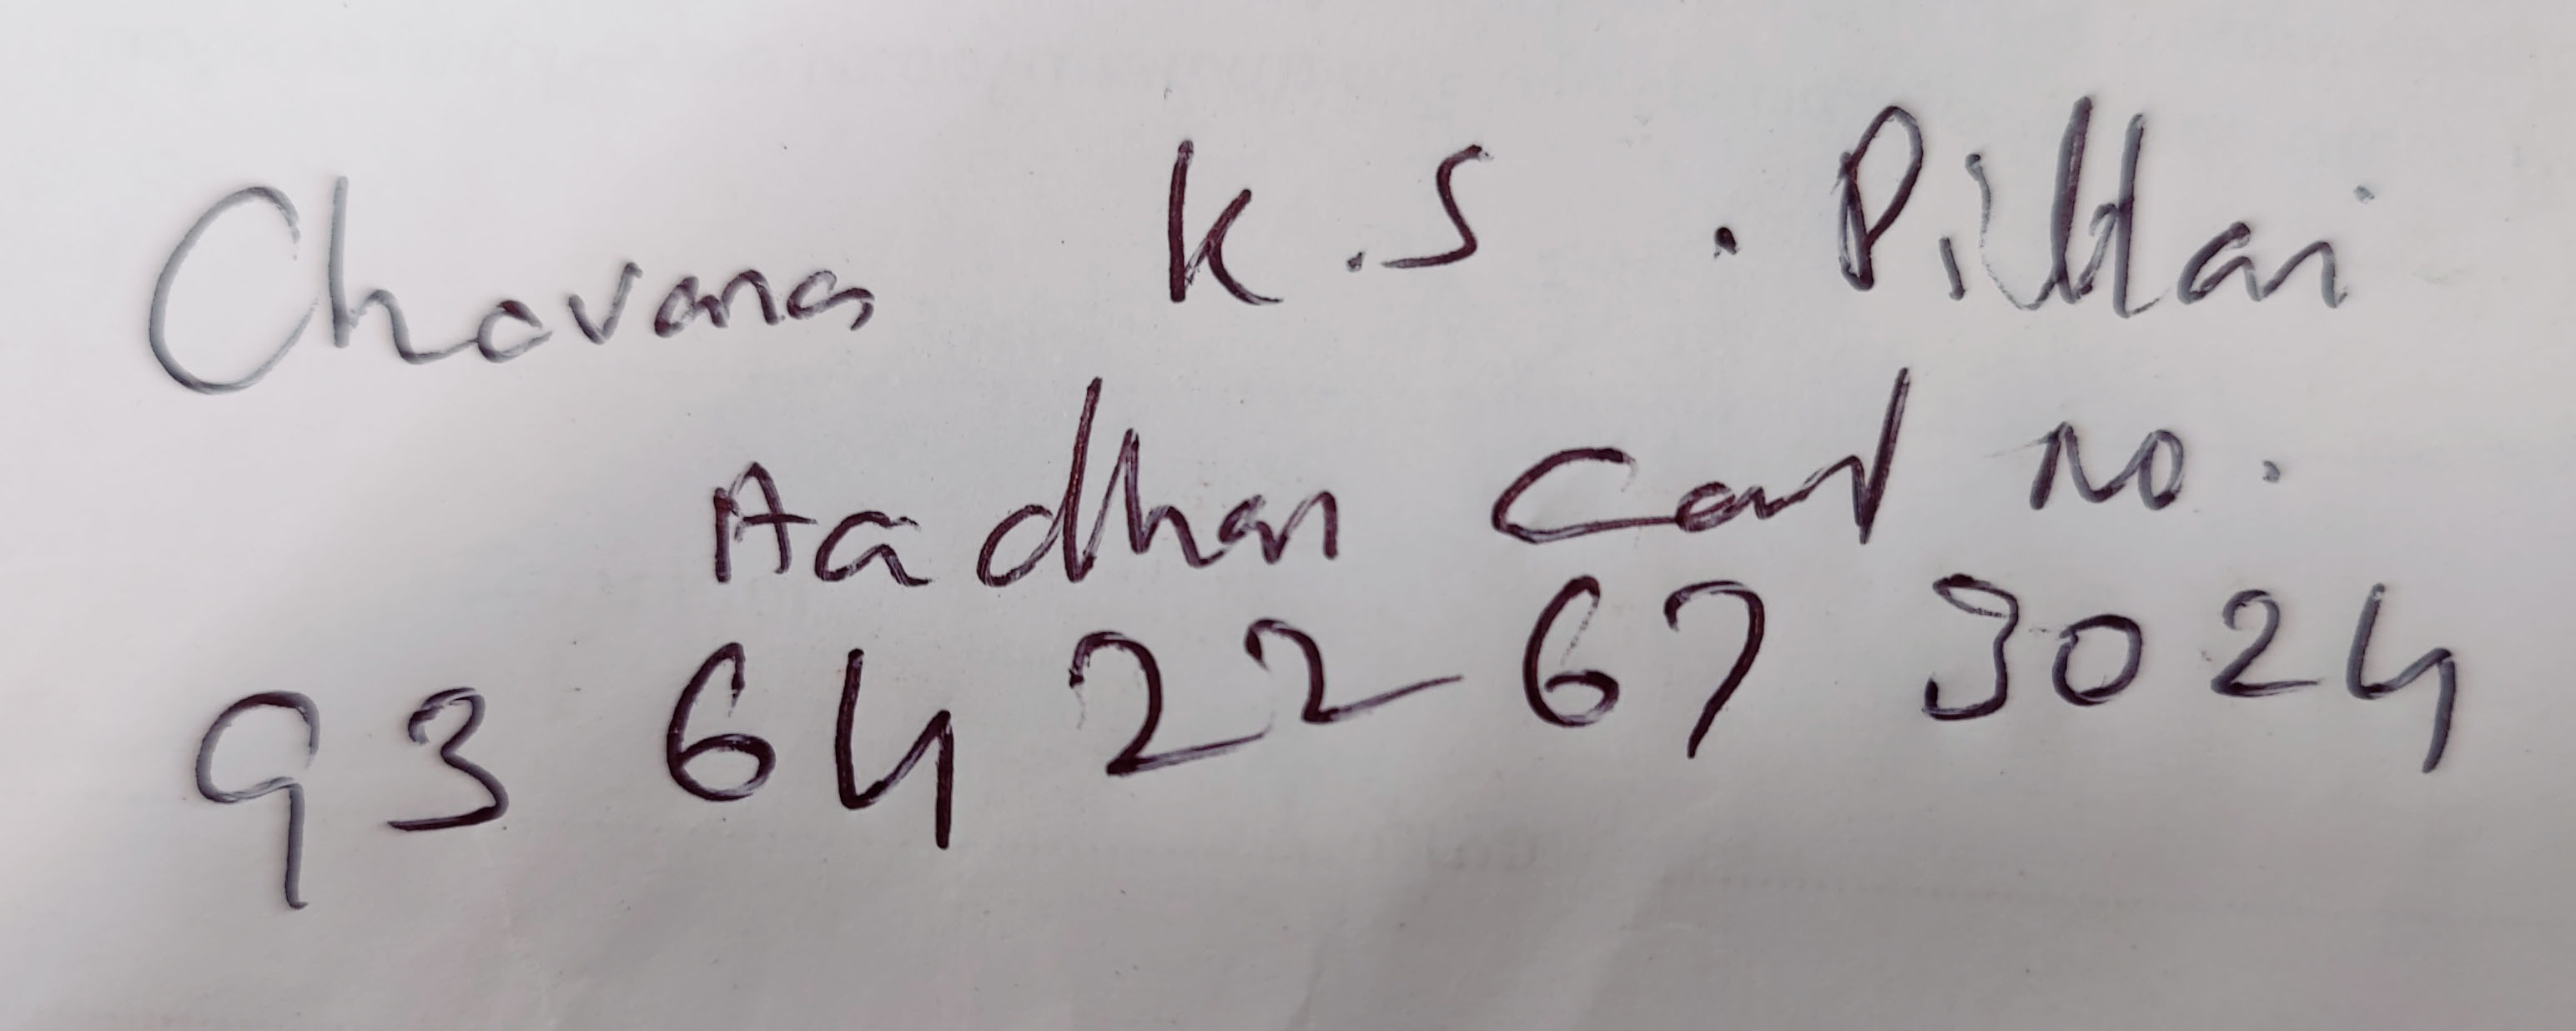 Chavana K.S. Pillai
Aadhar Card No.
93 64 22 67 3024